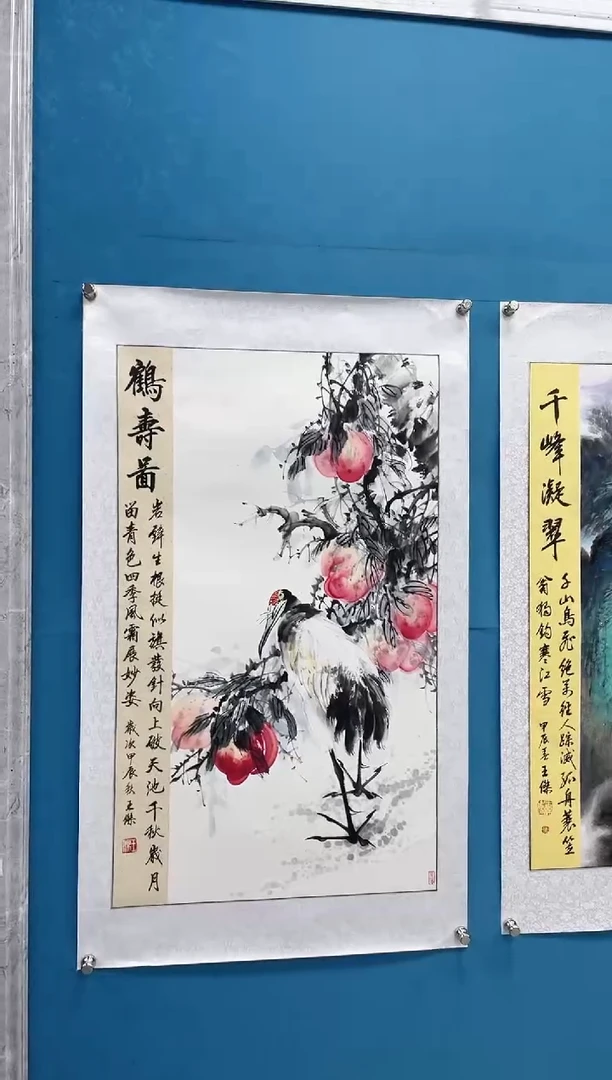 鶴壽圖
岩鋅生根挺似旗發針向上破天池千秋歲月
留青色四季風霜展妙姿 歲次甲辰秋王傑
千峰凝翠
千山鳥飛絶萬徑人踪滅孤舟蓑笠
翁獨釣寒江雪 甲辰春王傑